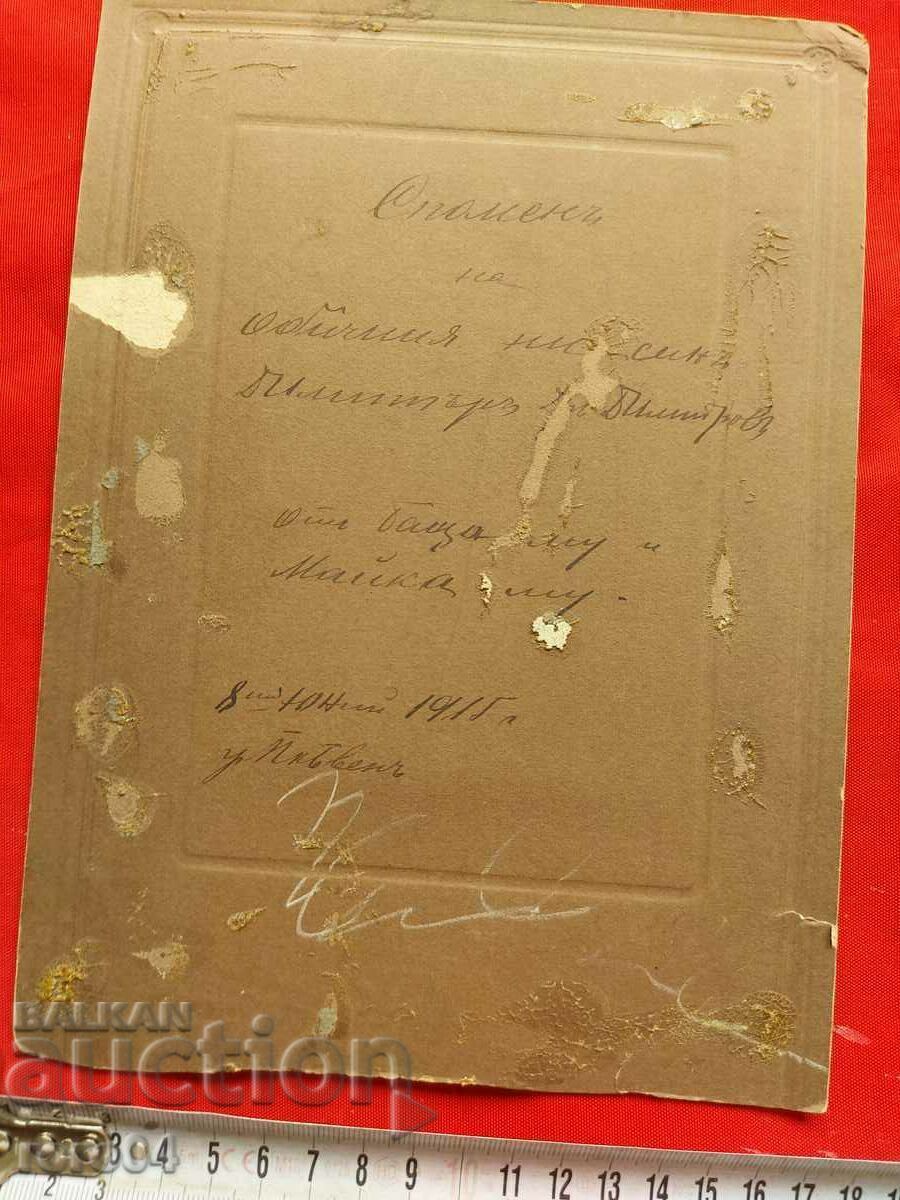 Споменъ
на
обичния ни синъ
Димитъръ Д. Димитровъ
отъ баща му и
Майка му.
8ий Юний 1915 г
гр Плѣвенъ
BALKAN
auction
3 4 5 6 7 8 9 10 11 12 13 14 15 16 17 18
2 3